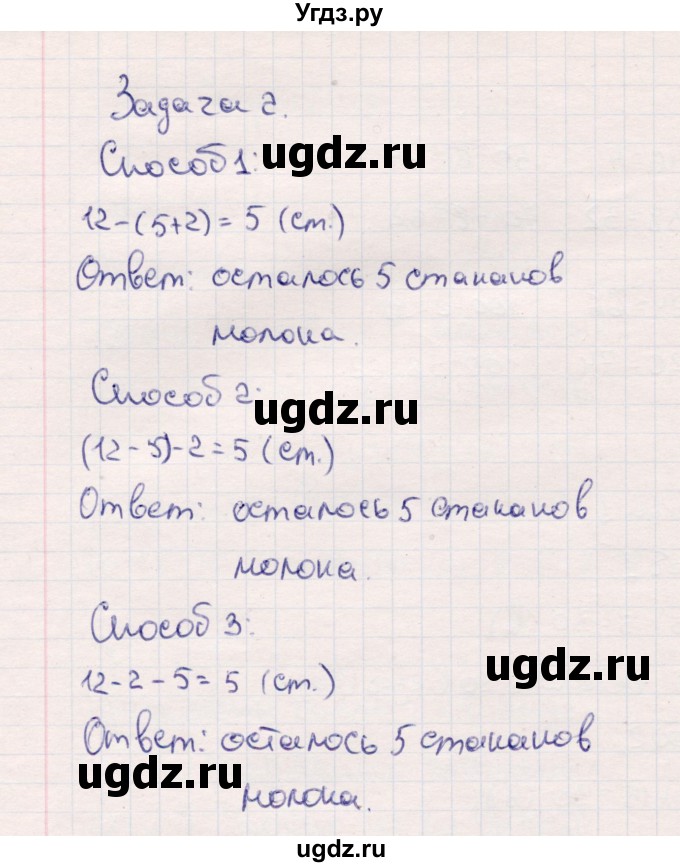 Угдз.ру
Задача 2.
Способ 1:
ugdz.ru
12-(5+2) = 5 (ст.)
Ответ: осталось 5 стаканов
молока.
Способ 2:
ugdz.ru
(12-5)-2=5 (ст.)
Ответ: осталось 5 стаканов
молока.
Способ 3:
ugdz.ru
12-2-5= 5 (ст.)
Ответ: осталось 5 стаканов
ugdz.ru
молока.
ugdz.ru